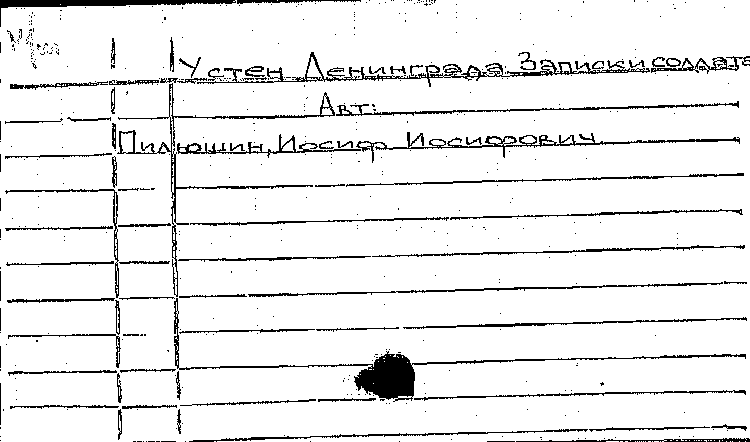 У стен Ленинграда. Записки солдата
Авт:
Пилюшин, Иосиф Иосифович